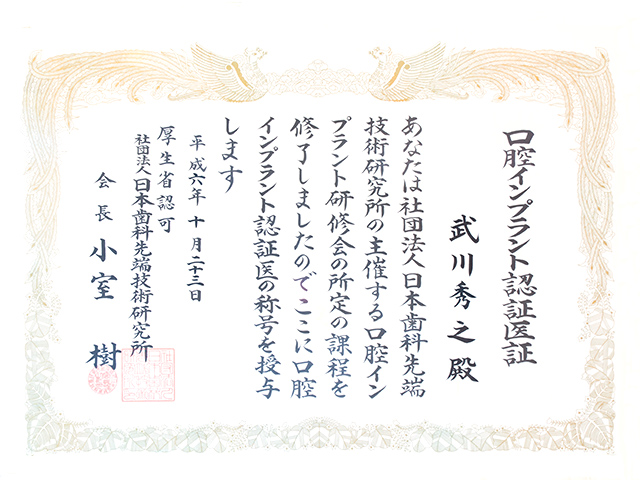 口腔インプラント認証医証
武川秀之殿
あなたは社団法人日本歯科先端
技術研究所の主催する口腔イン
プラント研修会の所定の課程を
修了しましたのでここに口腔
インプラント認証医の称号を授与
します
平成六年十月二十三日
厚生省認可
社団法人日本歯科先端技術研究所
会長 小室 樹